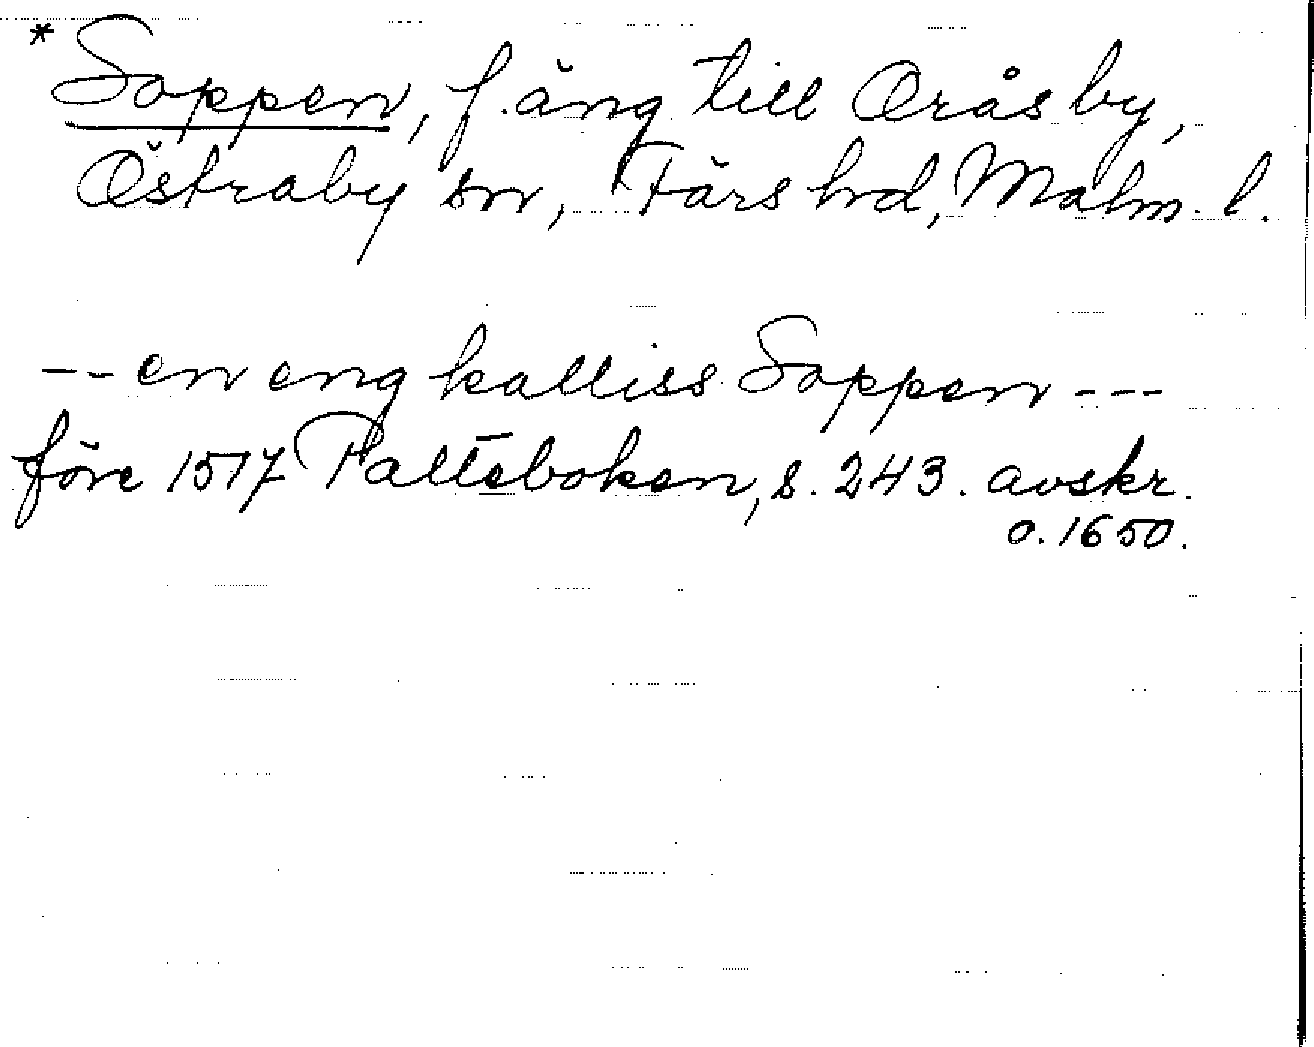 * Soppen, f. äng till Oråsby,
Östraby sn, Färs hd, Malm. l.
-- en eng kalliss Soppen ---
före 1517 Palteboken, s. 243. avskr.
o. 1650.